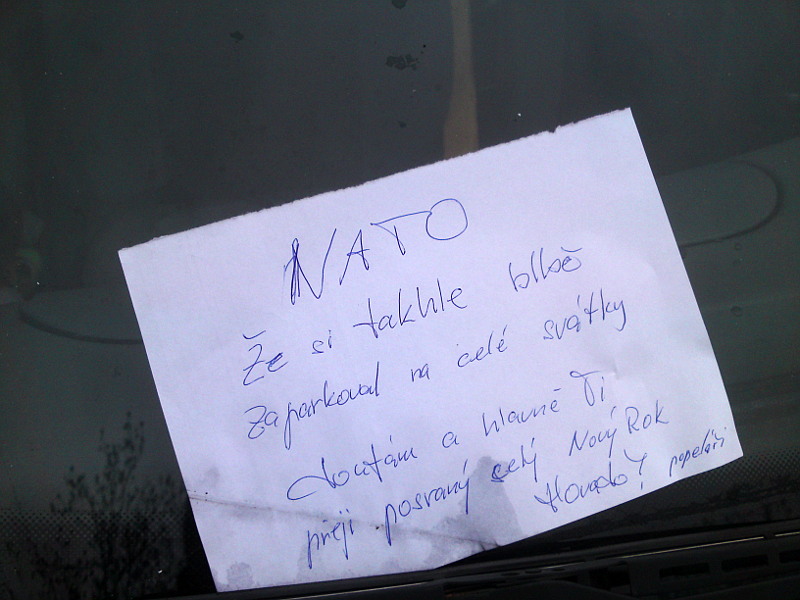 NATO
Že si takhle blbě
zaparkoval na celé svátky
doufám a hlavně Ti
přeji posraný celý Nový Rok
Hovado! popeláři